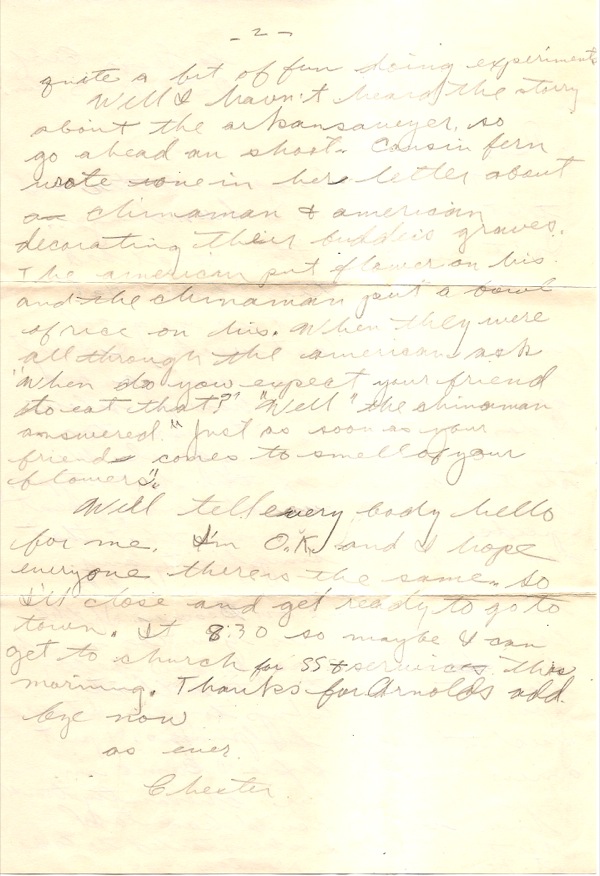 - 2 -
quite a bit of fun doing experiments
Well I havn't heard the story
about the arkansawyer, so
go ahead an shoot. Cousin fern
wrote one in her letter about
a chinaman & american
decorating their buddeis graves.
The american put flower on his
and the chinaman put a bowl
of rice on his. When they were
all through the american ask
"When do you expect your friend
to eat that?" "Well" the chinaman
answered "Just as soon as your
friend comes to smell of your
flowers".
Well tell every body hello
for me. I'm O.K. and I hope
everyone there is the same. So
I'll close and get ready to go to
town. It 8:30 so maybe I can
get to church for SS & services this
morning. Thanks for Arnolds add.
bye now
as ever
Chester